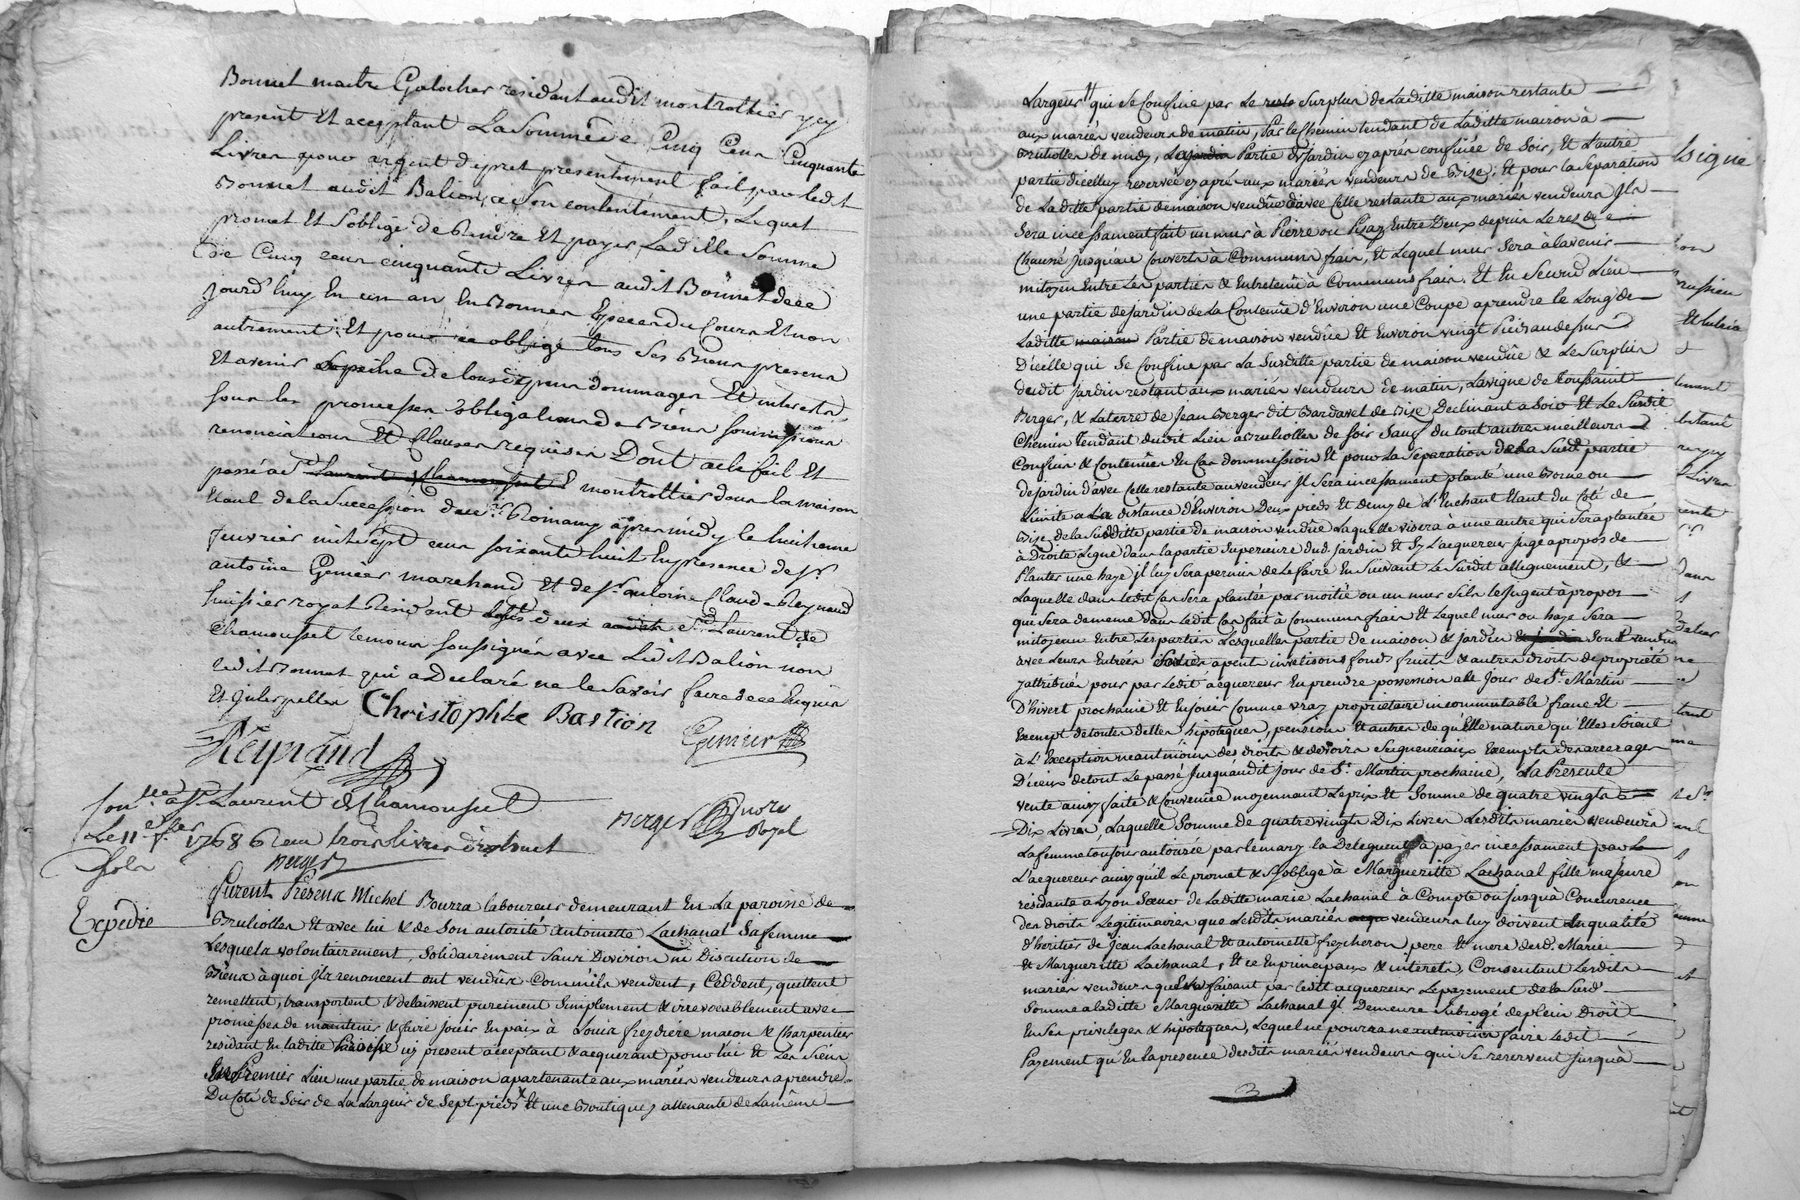 Bonnet maitre Galocher residant audit montrottier icy
present Et acceptant La Somme de Cinq Cens Cinquante
Livres pour argent de pret presentement fait par ledit
Bonnet audit Balion, a Son contentement, Lequel
promet Et soblige de Rendre Et payer Ladille Somme
De Cinq cens cinquante Livres audit Bonnet dece
jourd'huy En un an En Bonnes Especes du Cours Et non
autrement: Et pour ce oblige tous ses Biens presens
Et avenir a peine de tous depens dommages Et interets
sous les promesses obligations de Biens soumissions
renonciations Et Clauses requises Dont acte fait Et
passé a St Laurent de Chamousset montrottier dans la maison
Etant de la Succession de ce Sr Romany apres midy le huitieme
fevrier mil sept cens soixante huit En presence de Sr
antoine Gemier marchand Et de Sr antoine Claude Reynaud
huissier royal Residant tous deux audit St Laurent de
Chamousset temoins soussignés avec Ledit Balion non
ledit Bonnet qui a Declaré ne le savoir faire de ce Enquis
Et Interpellés Christophle Bastion
Reynaud Gemier
Con.lee a St Laurent de Chamousset
Le 11e fer 1768 Receu trois livres dix huit
Sols Berger
Berger Nore Royal
Expedié
furent Presens Michel Bourra laboureur demeurant En La paroisse de
Brullolles Et avec lui & de Son autorité antoinette Lachanal Sa femme
Lesquels volontairement, Solidairement Sans Division ni Discution de
Biens à quoi Ils renoncent ont vendus Comm'ils vendent, Ceddent, quittent
remettent, transportent & delaissent purement Simplement & irrevocablement avec
promesses de maintenir & faire joüir En paix à Louis freydiere macon & Charpentier
residant En laditte Paroisse icy present acceptant & acquerant pour lui Et Les Siens
En Premier Lieu une partie de maison apartenante aux mariés vendeurs a prendre
Du Coté de Soir de La Largeur de Sept pieds Et une Boutique attenante de La même
Largeur qui se Confine par Le reste Surplus de Laditte maison restante
aux mariés vendeurs de matin, Par le Chemin tendant de Laditte maison à
Brullolles de midy, La jardin Partie de Jardin cy aprés confinée de Soir, Et L'autre
partie d'icelluy reservée cy aprés aux mariés vendeurs de Bise; Et pour la Separation
de Laditte partie de maison vendüe d'avec Celle restante aux mariés vendeurs Il
Sera incessament fait un mur à Pierre ou Pizay Entre Deux depuis Le res de
Chaussé Jusqu'au Couverts à Communs frais, Et Lequel mur Sera à L'avenir
mitoyen Entre Les parties & Entretenu à Communs frais. Et En Second Lieu
une partie de Jardin de La Contenüe d'Environ une Coupe a prendre le Long de
Laditte maison Partie de maison vendüe Et Environ vingt Pieds au dessus
D'icelle qui Se Confine par La Susditte partie de maison vendüe & Le Surplus
dudit Jardin restant aux mariés vendeurs de matin, La vigne de toussaint
Berger, & La terre de Jean Berger dit Bardavel de Bise Declinant a Soir Et Le Susdit
Chemin tendant dudit Lieu a Brullolles de Soir Sauf du tout autres meilleurs
Confins & Contenües En Cas d'ommission Et pour La Separation de La Sude partie
de Jardin d'avec Celle restante au vendeur Il Sera incessament planté une Borne ou
Limite a La distance d'Environ Deux pieds Et demy de L'Enchant Etant du Coté de
Bise de la Susditte partie de maison vendüe Laquelle visera a une autre qui Sera plantée
à Droite Ligne dans la partie Superieure dud. Jardin Et Sy L'acquereur Juge apropos de
Planter une haye il luy Sera permis de Le faire En Suivant Le Susdit allignement, &
Laquelle dans ledit Cas Sera plantée par moitié ou un mur S'ils le Jugent à propos
qui Sera de meme Dans Ledit Cas fait à Communs frais Et Lequel mur ou haye Sera
mitoyenne Entre Les parties Lesquelles partie de maison & Jardin Et jardin Sont vendües
avec Leurs Entrées Sorties apent invetisons fonds fruits & autres droits de propriété
y attribués pour par Ledit acquereur En prendre possession au Jour de St Martin
D'hivert prochaine Et En Joüir Comme vray proprietaire incommutable franc Et
Exempt de toutes dettes hipoteques, pensions Et autres de quelle nature qu'Elles Soient
à L'Exception neantmoins des droits & devoirs Seigneuriaux Exempts des arrerages
D'iceux de tout Le passé Jusqu'audit jour de St Martin prochaine, La Presente
vente ainsy faite & Convenüe moyennant Le prix Et Somme de quatre vingts
Dix Livres, Laquelle Somme de quatre vingts Dix Livres Lesdits mariés vendeurs
La femme toujours autorisée par le mary La Deleguent à payer incessament par
L'acquereur ainsy qu'il Le promet & s'oblige à Margueritte Lachanal fille majeure
residante a Lyon Soeur de Laditte mariée Lachanal à Compte ou jusqu'à Concurrence
des droits Legitimaires que Lesdits mariés vendeurs luy doivent En qualité
d'heritiers de Jean Lachanal Et antoinette freycheron pere Et mere desd. Mariée
Et Margueritte Lachanal, Et ce En principaux & interets, Consentant Lesdits
mariés vendeurs que En faisant par ledit acquereur Le payement de la Susd.
Somme a laditte Margueritte Lachanal Il Demeure Subrogé de plein Droit
En Ses privileges & hipoteques, Lequel ne pourra neantmoins faire Ledit
Payement qu'En La presence desdits mariés vendeurs qui Se reservent jusqu'à